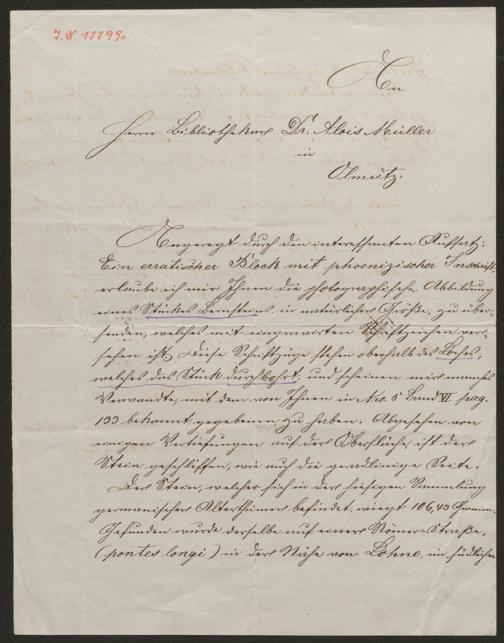 J. N. 138990
An
Herrn Bibliothekar Dr. Alois Müller
in
Olmütz.
Angeregt durch den interessanten Aufsatz:
Ein erratischer Block mit phoenizischer Inschrift,
erlaube ich mir Ihnen die photographische Abbildung
eines Stückes Bernstein, in natürlicher Größe, zu über-
senden, welches mit eingravirten Schriftzeichen ver-
sehen ist. Diese Schriftzüge stehen oberhalb des Loches,
welches das Stück durchbohrt, und scheinen mir manches
Verwandte, mit dem von Ihnen in Nro. 5 Band VI pag.
133 bekannt gegebenen, zu haben. Abgesehen von
einigen Vertiefungen auf der Oberfläche, ist der
Stein geschliffen, wie auch die geradlinige Seite.
Der Stein, welcher sich in der hiesigen Sammlung
germanischer Alterthümer befindet, wiegt 106,43 Gramm.
Gefunden wurde derselbe auf einer Römer-Straße,
(pontes longi) in der Nähe von Lohne, im südlichen